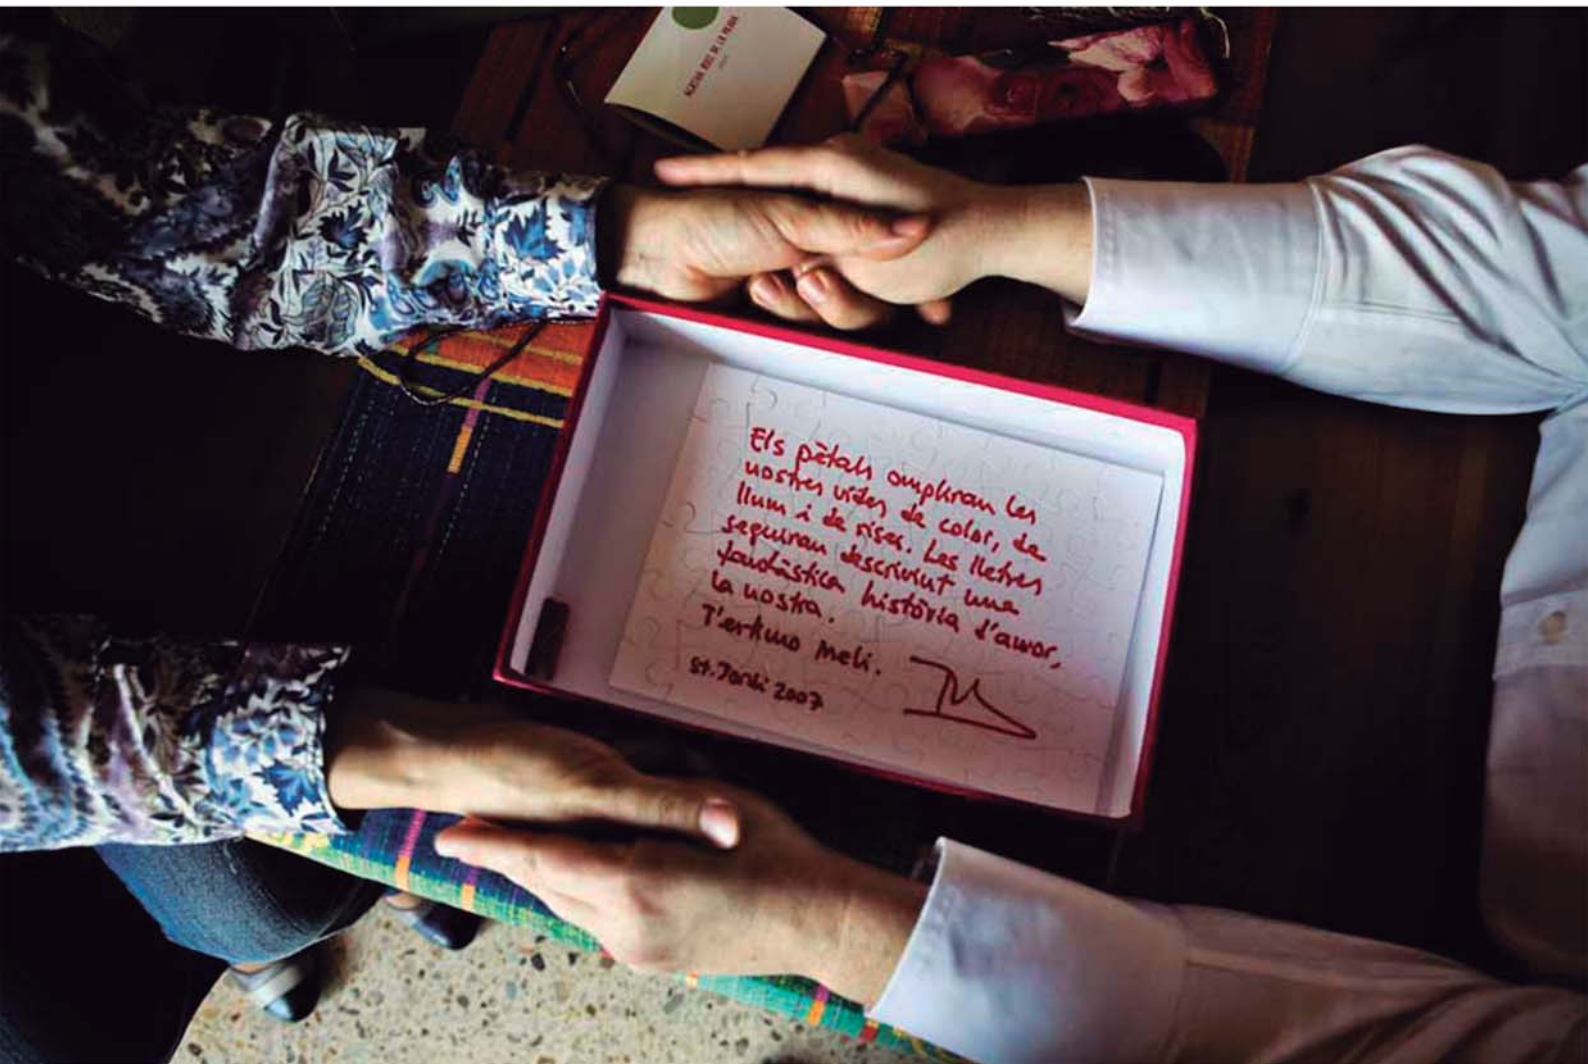 Els pètals ompliran les
nostres vides de color, de
llum i de rises. Les lletres
seguiran descrivint una
fantàstica història d'amor,
la nostra.
T'estimo Meli.
St. Jordi 2007